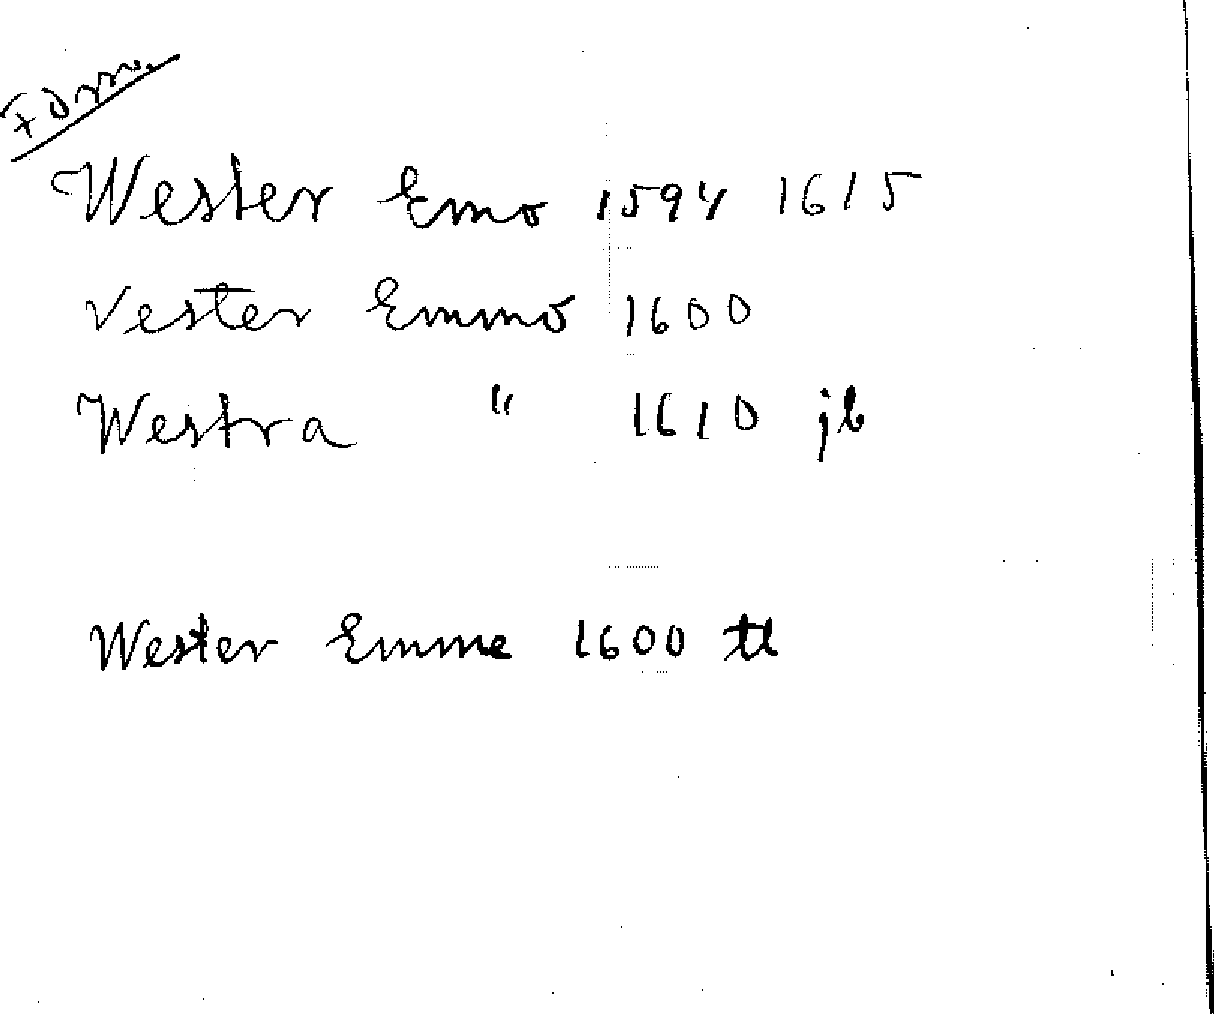 Form.
Wester Emo 1594 1615
Vester Emmo 1600
Westra " 1610 jb
Wester Emme 1600 tl